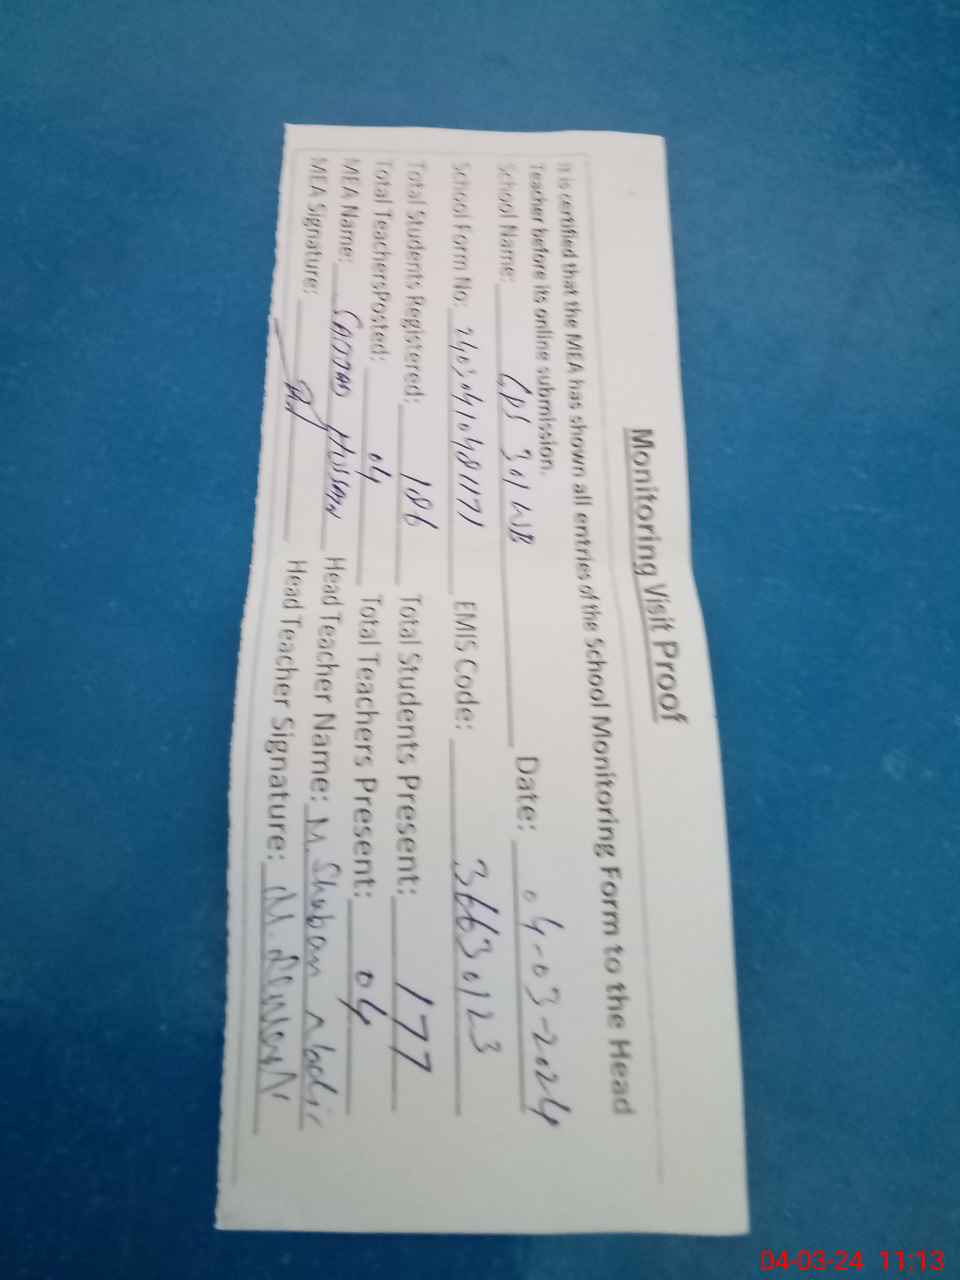 Monitoring Visit Proof
It is certified that the MEA has shown all entries of the School Monitoring Form to the Head
Teacher before its online submission.
Date: 04-03-2024
School Name: GPS 301 WB
School Form No: 240304104811171 EMIS Code: 36630123
Total Students Registered: 186 Total Students Present: 177
Total TeachersPosted: 04 Total Teachers Present: 04
MEA Name: SAJJAD HUSSAIN Head Teacher Name: M Shaban Nadir
MEA Signature: Head Teacher Signature:
04-03-24 11:13